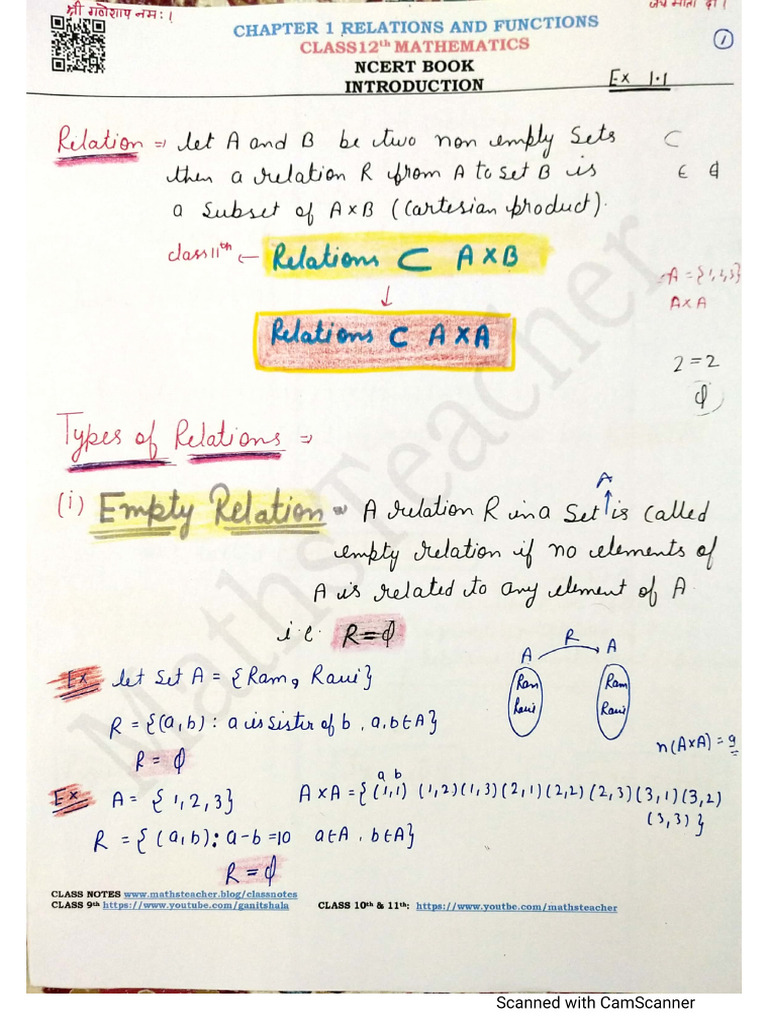 श्री गणेशाय नमः।
जय माता दी।
CHAPTER 1 RELATIONS AND FUNCTIONS
CLASS12th MATHEMATICS
NCERT BOOK
INTRODUCTION
1
Ex 1.1
Relation ⇒ Let A and B be two non empty Sets
then a relation R from A to Set B is
a subset of A×B (Cartesian product).
⊂
∈ ϕ
class 11th ← Relations ⊂ A×B
↓
Relations ⊂ A×A
A = {1,2,3}
A×A
2=2
ϕ
Types of Relations ⇒
(i) Empty Relation ⇒ A relation R in a Set ↑ is called
A
empty relation if no elements of
A is related to any element of A.
i.e. R=ϕ
Ex Let Set A = {Ram, Ravi}
R = {(a,b) : a is sister of b , a,b∈A}
R = ϕ
A R A
Ram Ram
Ravi Ravi
n(A×A) = 9
Ex A = {1,2,3}
a b
A×A = {(1,1) (1,2)(1,3)(2,1)(2,2)(2,3)(3,1)(3,2)
(3,3)}
R = {(a,b): a-b=10 a∈A, b∈A}
R=ϕ
CLASS NOTES www.mathsteacher.blog/classnotes
CLASS 9th https://www.youtube.com/ganitshala CLASS 10th & 11th: https://www.youtbe.com/mathsteacher
MathsTeacher
Scanned with CamScanner